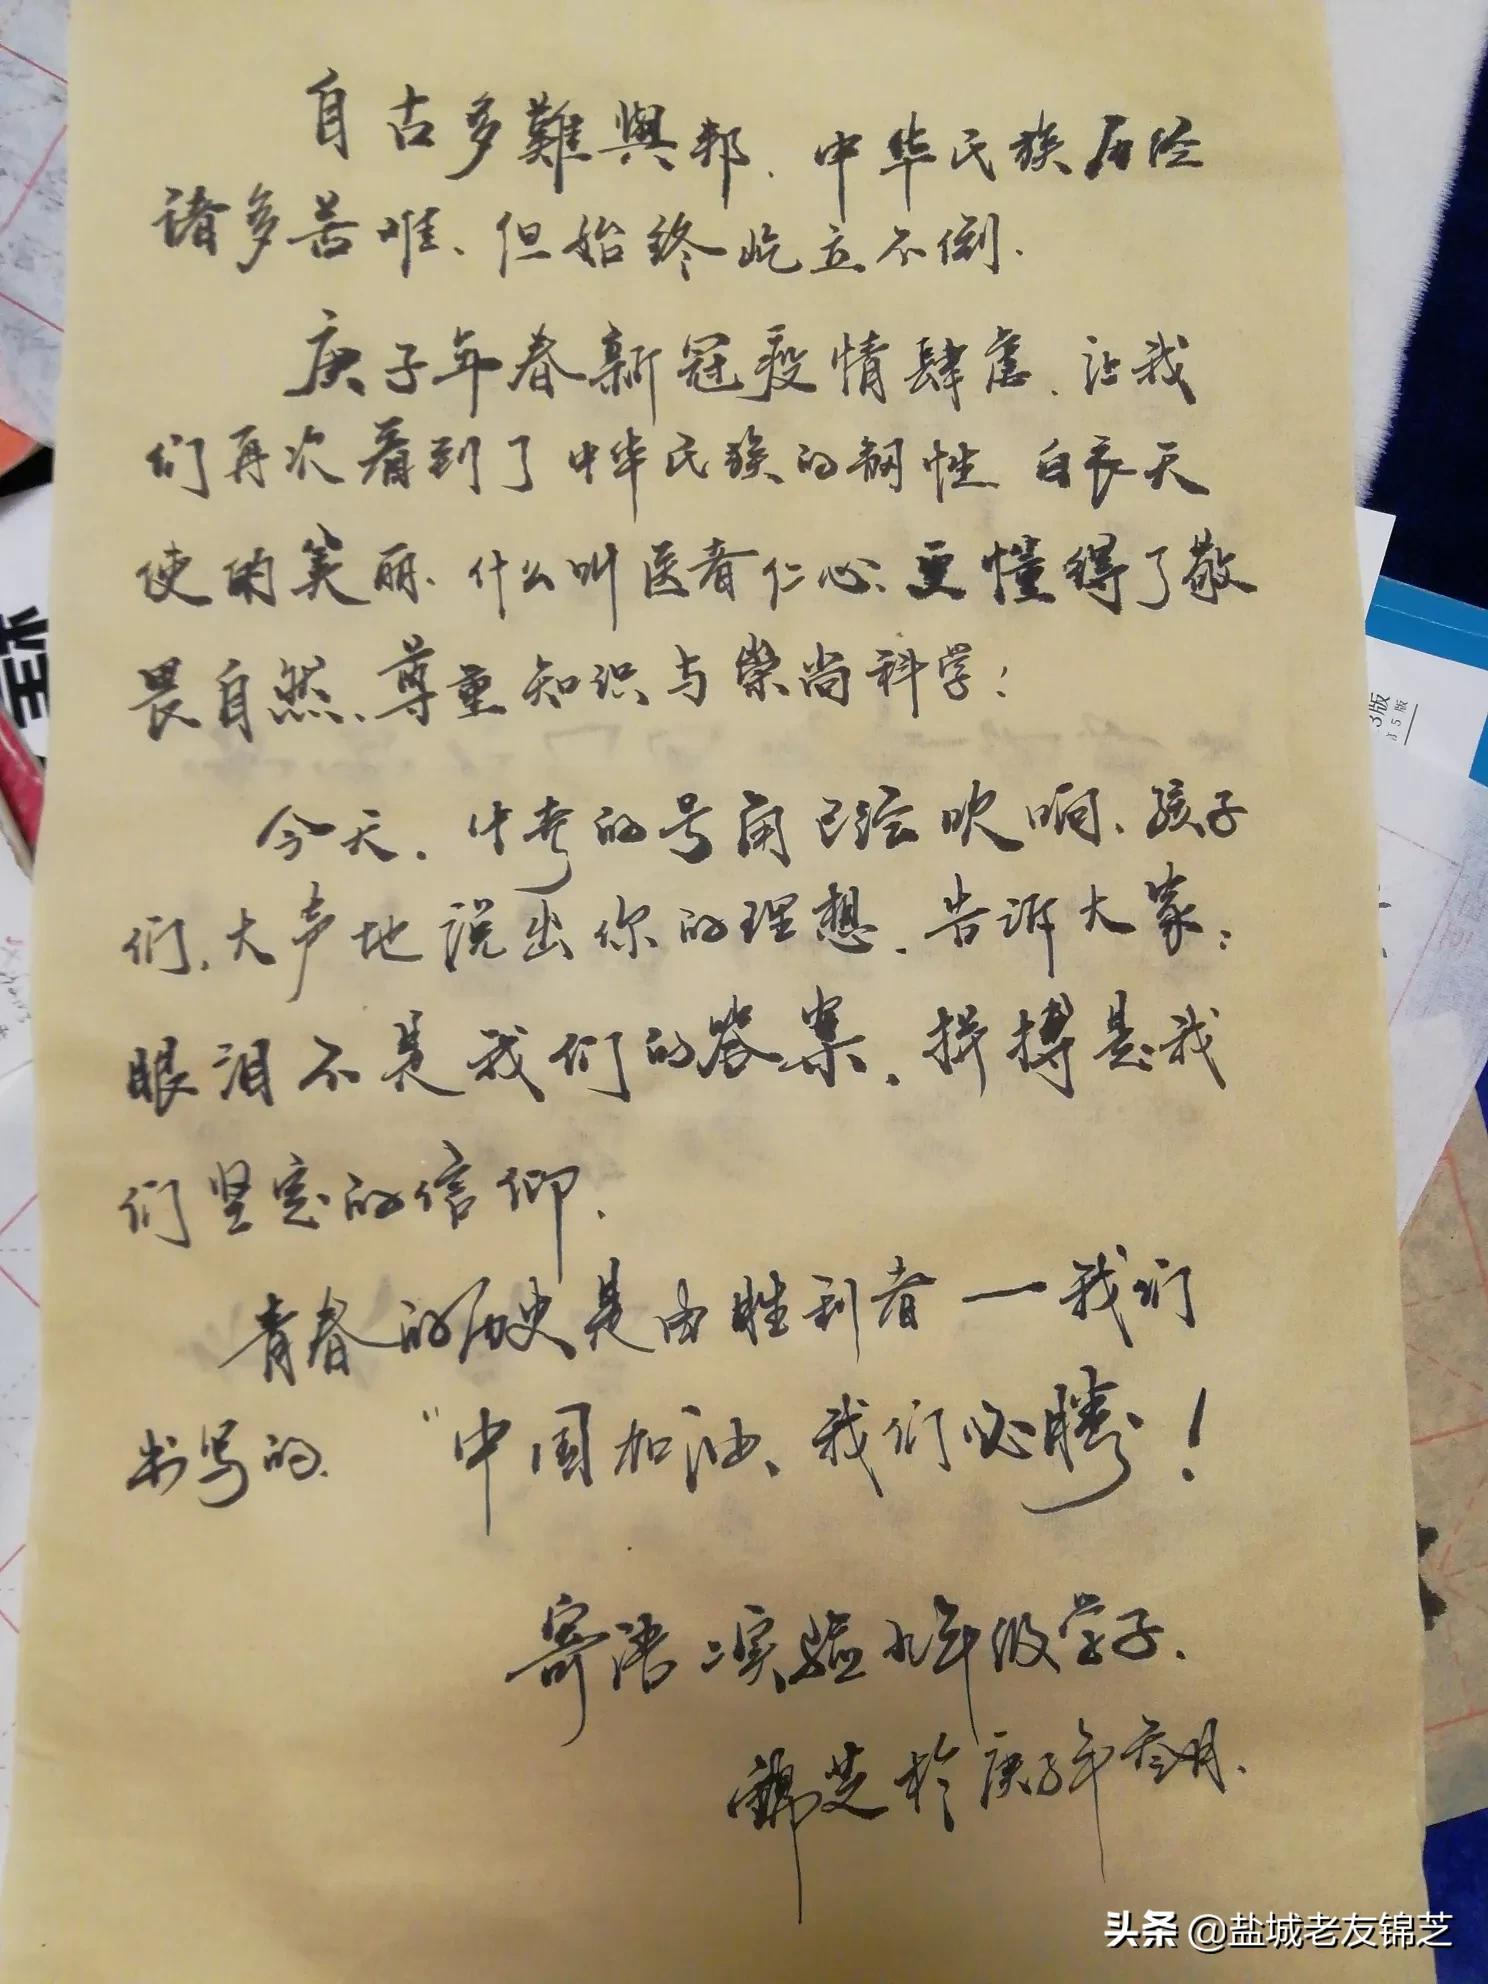 自古多難興邦、中华民族历经
诸多苦难、但始终屹立不倒.
庚子年春新冠疫情肆虐、让我
们再次看到了中华民族的韧性、白衣天
使的美丽、什么叫医者仁心、更懂得了敬
畏自然、尊重知识与崇尚科学！
今天、中考的号角已经吹响、孩子
们、大声地说出你的理想、告诉大家：
眼泪不是我们的答案、拼搏是我
们坚定的信仰.
青春的历史是由胜利者一我们
书写的."中国加油、我们必勝！
寄语二实验九年级学子.
錦芝於庚子年叁月.
3版
第5版
头条 @盐城老友锦芝